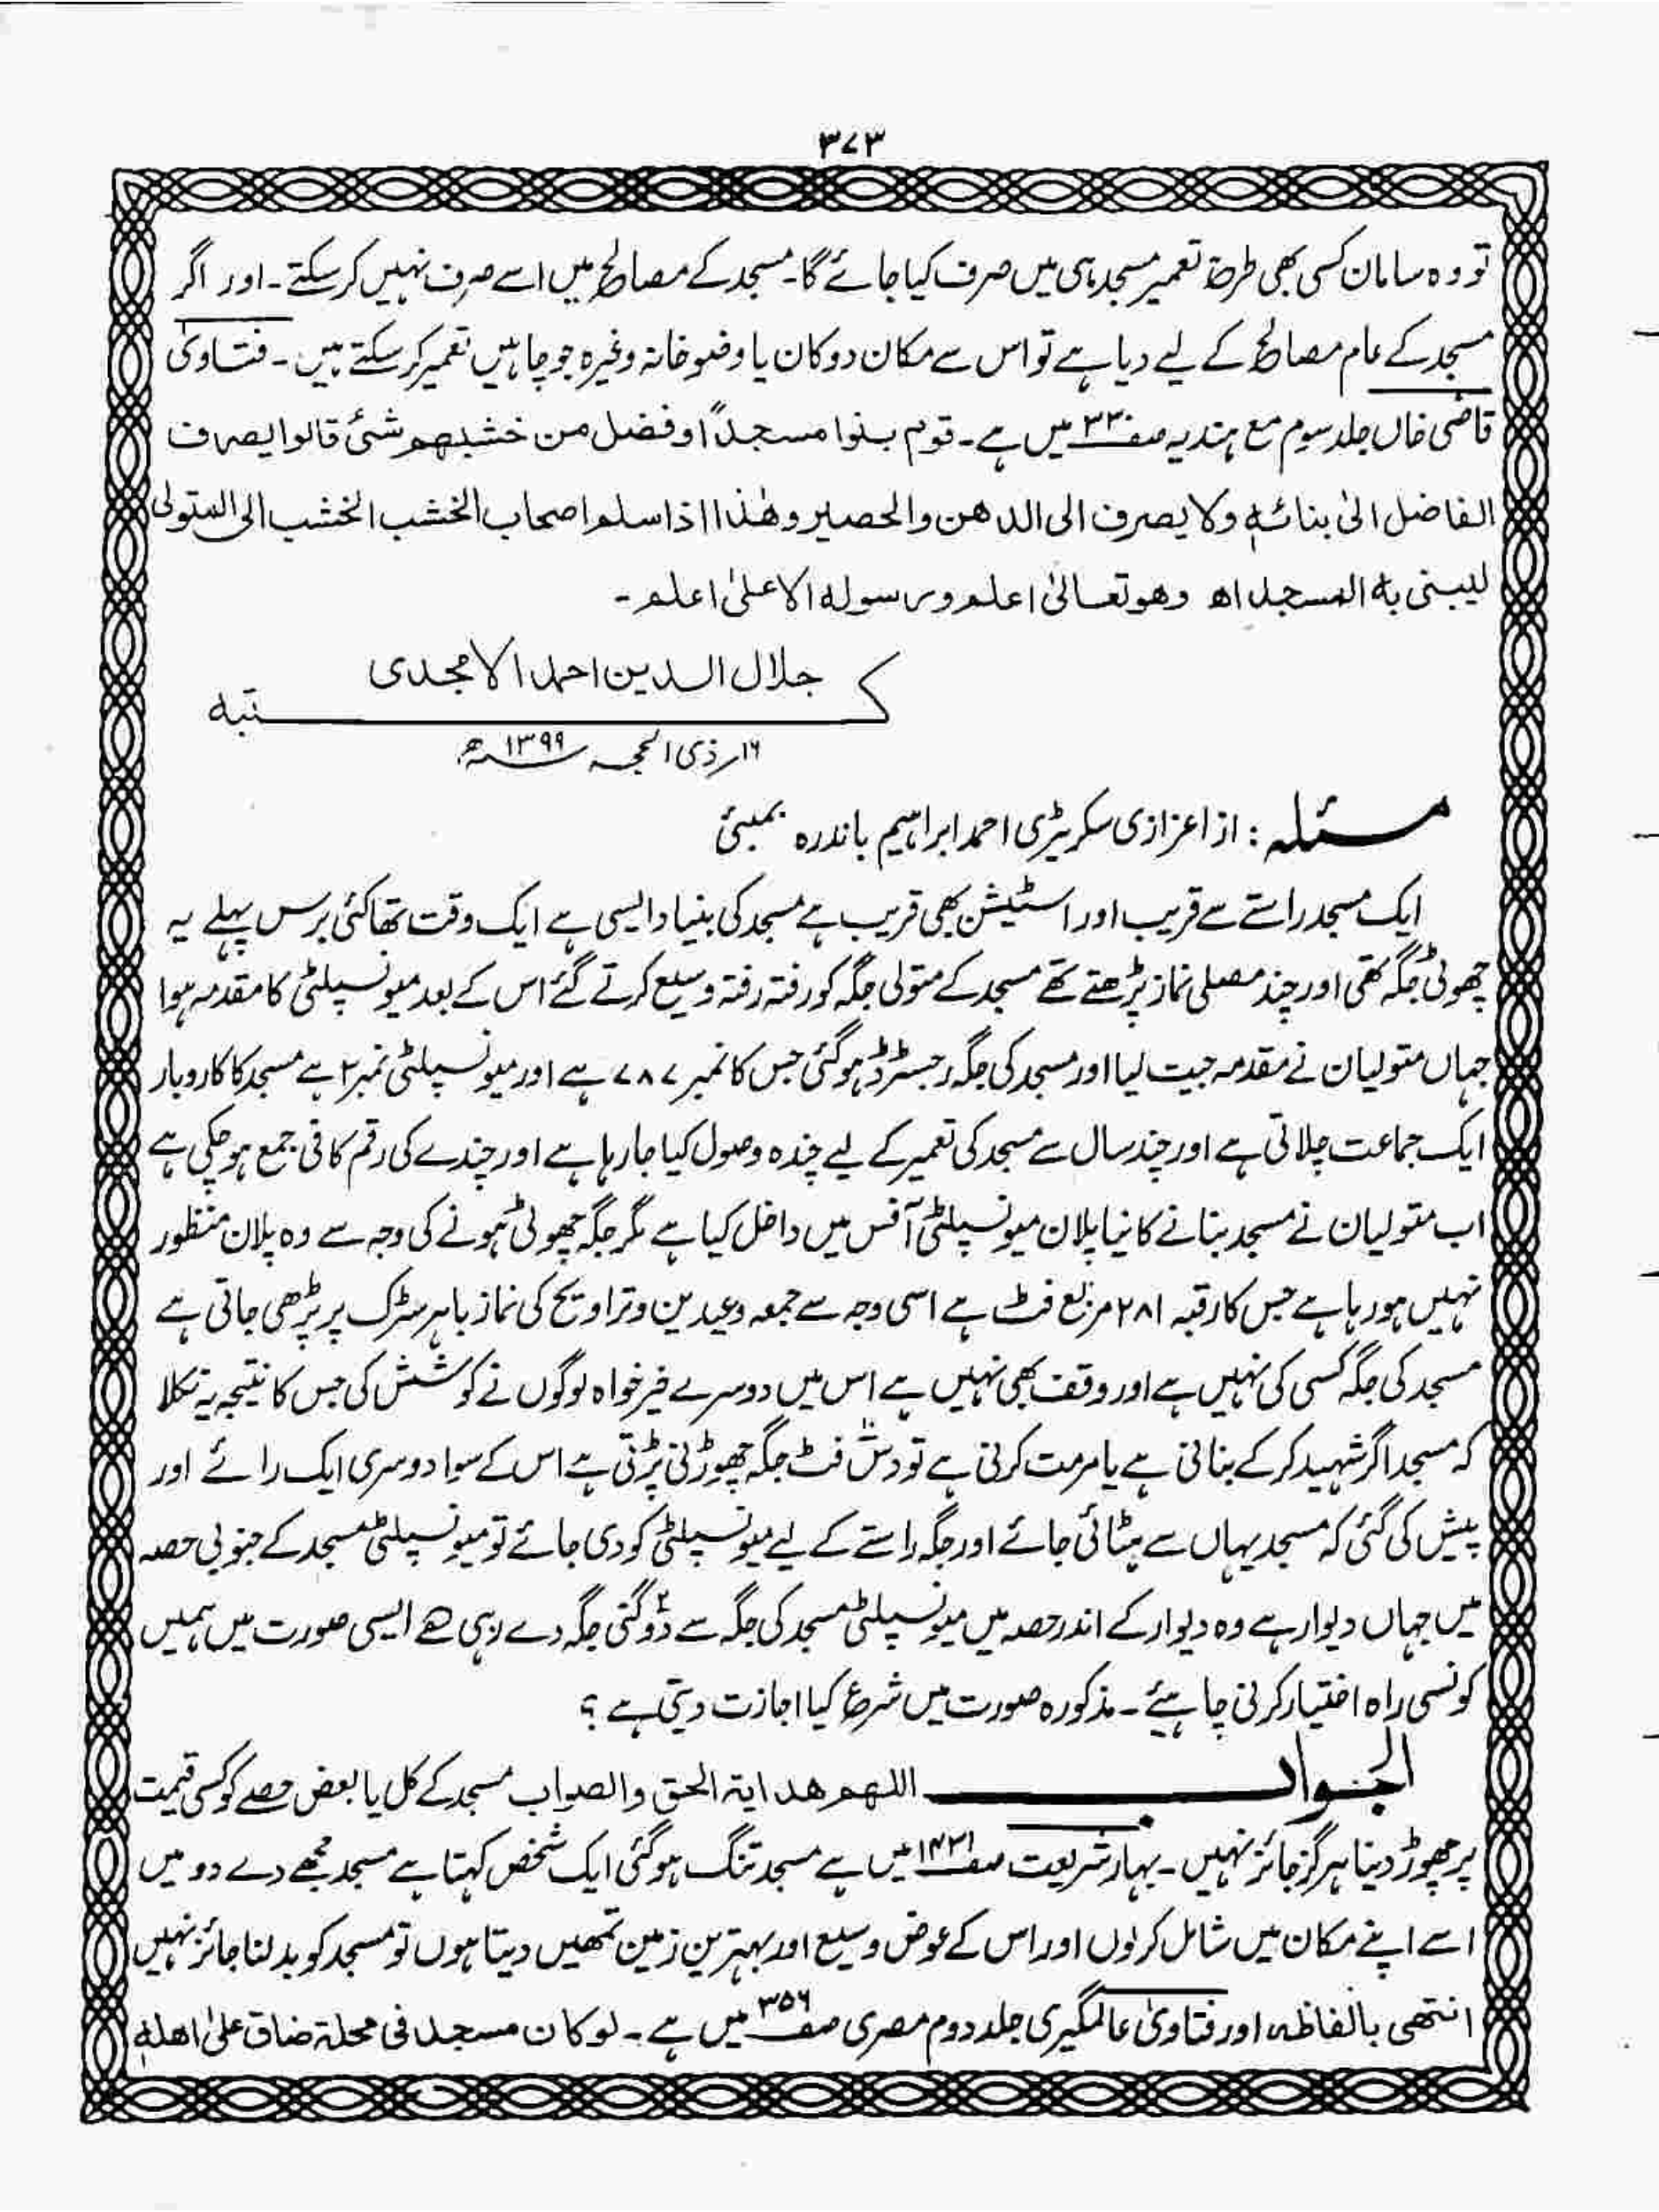 ۳۷۳
تو وہ سامان کسی بھی طرح تعمیر مسجد ہی میں صرف کیا جائے گا۔ مسجد کے مصالح میں اسے صرف نہیں کر سکتے۔ اور اگر
مسجد کے عام مصالح کے لیے دیا ہے تو اس سے مکان دوکان یا وضو خانہ وغیرہ جو چاہیں تعمیر کر سکتے ہیں۔ فتاویٰ
قاضی خاں جلد سوم مع ہندیہ صفحہ ۳۳۰ میں ہے۔ قوم بنوا مسجداً وفضل من خشبھم شئ قالوا یصرف
الفاضل الیٰ بنائہٖ ولا یصرف الی الدھن والحصیر وھٰذا اذا سلم اصحاب الخشب الخشب الی المتولی
لیبنی بہ المسجد اھ وھو تعالیٰ اعلم ورسولہ الاعلیٰ اعلم۔
جلال الدین احمد الامجدی
کتبہ
۱۶ر ذی الحجہ ۱۳۹۹ھ
مسئلہ : از اعزازی سکریٹری احمد ابراہیم باندرہ بمبئی
ایک مسجد راستے سے قریب اور اسٹیشن بھی قریب ہے مسجد کی بنیاد ایسی ہے ایک وقت تھا کئی برس پہلے یہ
چھوٹی جگہ تھی اور چند مصلی نماز پڑھتے تھے مسجد کے متولی جگہ کو رفتہ رفتہ وسیع کرتے گئے اس کے بعد میونسپلٹی کا مقدمہ ہوا
جہاں متولیان نے مقدمہ جیت لیا اور مسجد کی جگہ رجسٹرڈ ہو گئی جس کا نمبر ۷۸۷ ہے اور میونسپلٹی نمبر ۲ ہے مسجد کا کاروبار
ایک جماعت چلاتی ہے اور چند سال سے مسجد کی تعمیر کے لیے چندہ وصول کیا جا رہا ہے اور چندے کی رقم کافی جمع ہو چکی ہے
اب متولیان نے مسجد بنانے کا نیا پلان میونسپلٹی آفس میں داخل کیا ہے مگر جگہ چھوٹی ہونے کی وجہ سے وہ پلان منظور
نہیں ہو رہا ہے جس کا رقبہ ۲۸۱ مربع فٹ ہے اسی وجہ سے جمعہ وعیدین وتراویح کی نماز باہر سڑک پر پڑھی جاتی ہے
مسجد کی جگہ کسی کی نہیں ہے اور وقف بھی نہیں ہے اس میں دوسرے خیر خواہ لوگوں نے کوشش کی جس کا نتیجہ یہ نکلا
کہ مسجد اگر شہید کر کے بنانی ہے یا مرمت کرنی ہے تو دس۱۰ فٹ جگہ چھوڑنی پڑتی ہے اس کے سوا دوسری ایک رائے اور
پیش کی گئی کہ مسجد یہاں سے ہٹائی جائے اور جگہ راستے کے لیے میونسپلٹی کو دی جائے تو میونسپلٹی مسجد کے جنوبی حصہ
میں جہاں دیوار ہے وہ دیوار کے اندر حصہ میں میونسپلٹی مسجد کی جگہ سے دو۲ گنی جگہ دے رہی ھے ایسی صورت میں ہمیں
کونسی راہ اختیار کرنی چاہیئے۔ مذکورہ صورت میں شرع کیا اجازت دیتی ہے ؟
الجواب اللھم ھدایۃ الحق والصواب مسجد کے کل یا بعض حصے کو کسی قیمت
پر چھوڑ دینا ہرگز جائز نہیں۔ بہار شریعت صفحہ ۱۴۳۱ میں ہے مسجد تنگ ہو گئی ایک شخص کہتا ہے مسجد مجھے دے دو میں
اسے اپنے مکان میں شامل کر لوں اور اس کے عوض وسیع اور بہترین زمین تمھیں دیتا ہوں تو مسجد کو بدلنا جائز نہیں
انتھی بالفاظہ اور فتاویٰ عالمگیری جلد دوم مصری صفحہ ۳۵۶ میں ہے۔ لو کان مسجد فی محلۃ ضاق علیٰ اھلہٖ